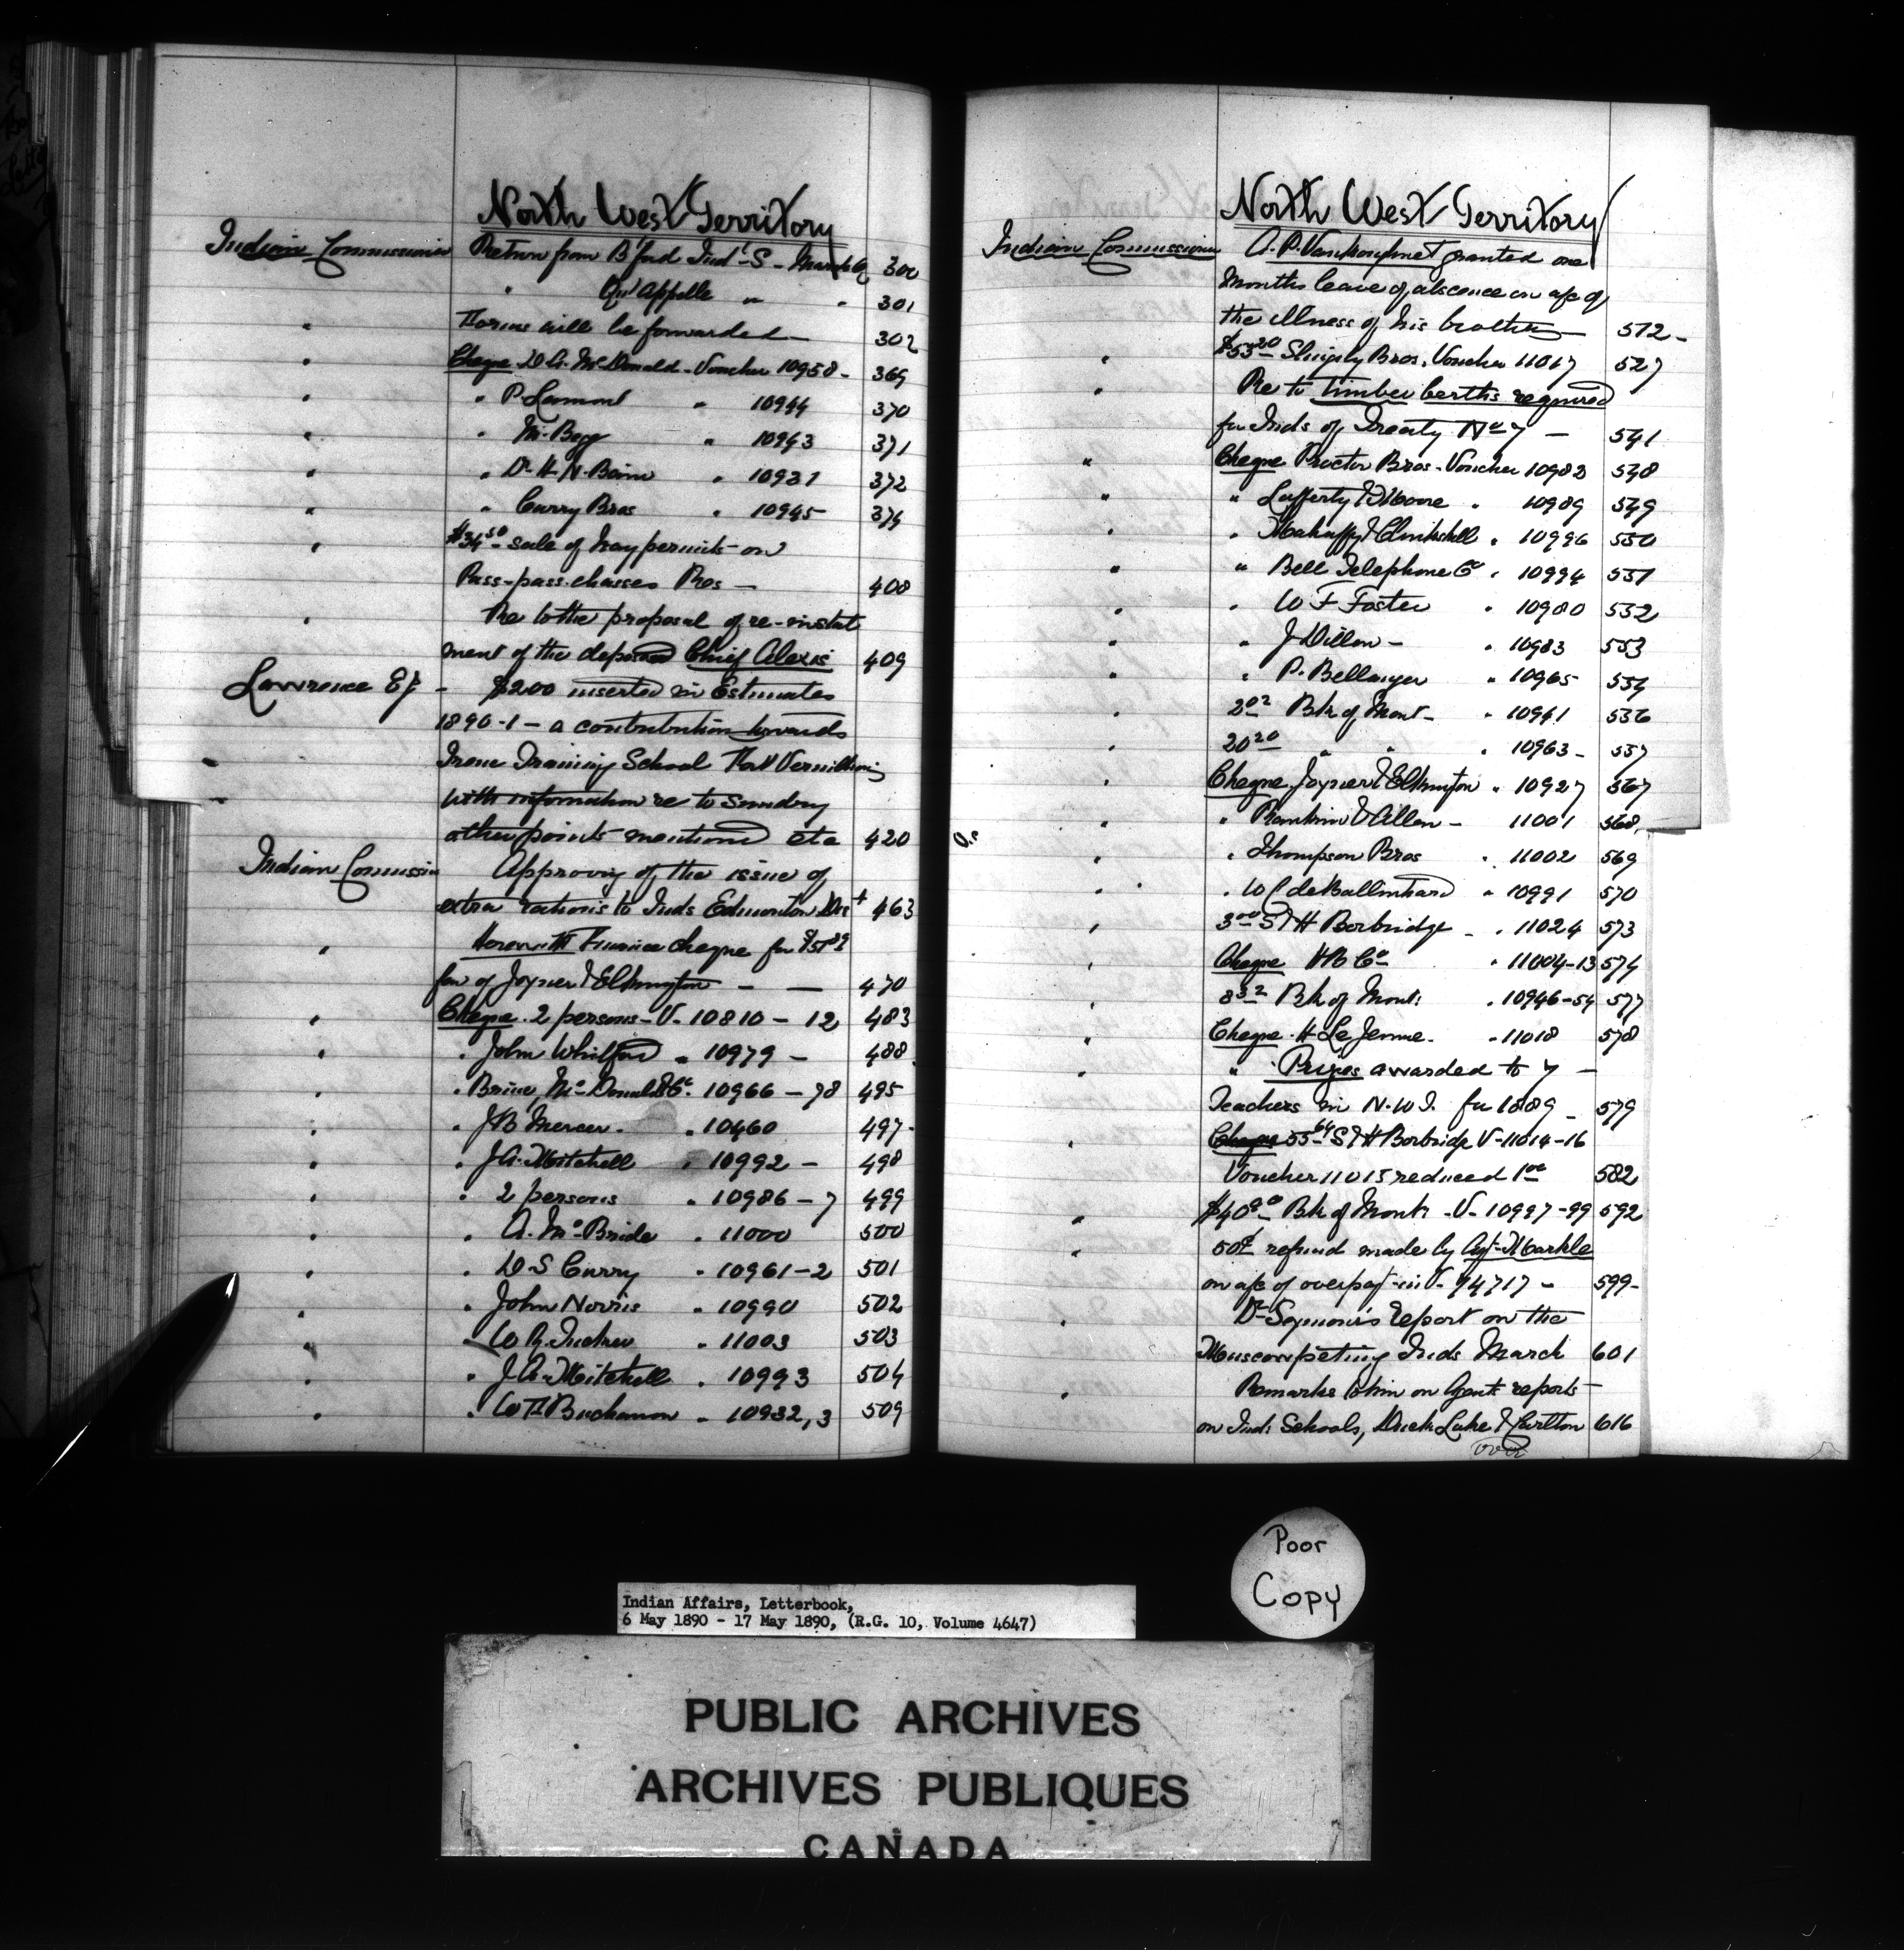 North West Territory
Indian Commissioner Return from B'ford Ind'l S - March 300
" Qu'Appelle " " 301
" Forms will be forwarded - 302
" Cheque D A. McDonald - Voucher 10958 - 369
" " P. Lamont " 10944 370
" " M. Begg " 10943 371
" " Dr H. N. Bain " 10931 372
" " Curry Bros " 10945 374
" $34.50 sale of hay permits on
Pass-pass-chasses Res - 408
" Re to the proposal of re-instat
ment of the deposed Chief Alexis 409
Lawrence E J - $200 inserted in Estimates
1890-1 - a contribution towards
Irene Training School Fort Vermillion
with information re to sundry
other points mentioned etc 420
Indian Commissin Approving of the issue of
extra rations to Inds Edmonton Dist 463
" Herewith Finance cheque for
fav of Joyner & Elkington - - 470
" Cheque. 2 persons - V - 10810 - 12 483
" " John Whitford " 10979 - 488
" " Brine, McDonald & Co. 10966 - 78 495
" " J B Mercer - " 10460 497 -
" " J A. Mitchell " 10992 - 498
" " 2 persons " 10986 - 7 499
" " A. McBride " 11000 500
" " D. S Curry " 10961-2 501
" " John Norris " 10990 502
" " W R. 11003 503
" " J A. Mitchell " 10993 504
" " W Buchanan " 10932, 3 509
North West Territory
Indian Commissioner A. P. Vankoughnet granted one
Months leave of abscence on a/c of
the illness of his brother - 512 -
" $53.20 Slingsby Bros. Voucher 11017 527
" Re to timber berths required
for Inds of Treaty No 7 - 541
" Cheque Proctor Bros - Voucher 10982 548
" " Lafferty & Moore " 10989 549
" " Mahaffy & Clinkskill " 10996 550
" " Bell Telephone Co " 10994 551
" " W F Foster " 10980 552
" " J Dillon - " 10983 553
" " P. Bellanger " 10965 554
" 2.02 Bk of Mont - " 10941 556
" 20.20 " " " 10963 - 557
" Cheque Joyner & Elkington " 10927 567
" " Rankin & Allan - 11001 568
" " Thompson Bros " 11002 569
" " W C deBallinhard " 10991 570
" 3.00 S & H Borbridge - " 11024 573
" Cheque H B Co " 11004-13 574
" Bk of Mont: " 10946-54 577
" Cheque - H LeJeune - " 11018 578
" " Prizes awarded to 7 -
Teachers in N. W T. for 1889 - 579
" Cheque 55.64 S & H Borbridge V-11014-16
Voucher 11015 reduced 1.00 582
" Bk of Mont: - V - 10997-99 592
" 50¢ refund made by Agt - Markle
on a/c of overpay't - in V - 599 -
" Dr Seymour's report on the
Muscowpeting Inds March 601
" Remarks to him on Agents reports -
on Ind: Schools, Duck Lake & Carlton 616
over
Poor
Copy
Indian Affairs, Letterbook,
6 May 1890 - 17 May 1890, (R.G. 10, Volume 4647)
PUBLIC ARCHIVES
ARCHIVES PUBLIQUES
CANADA